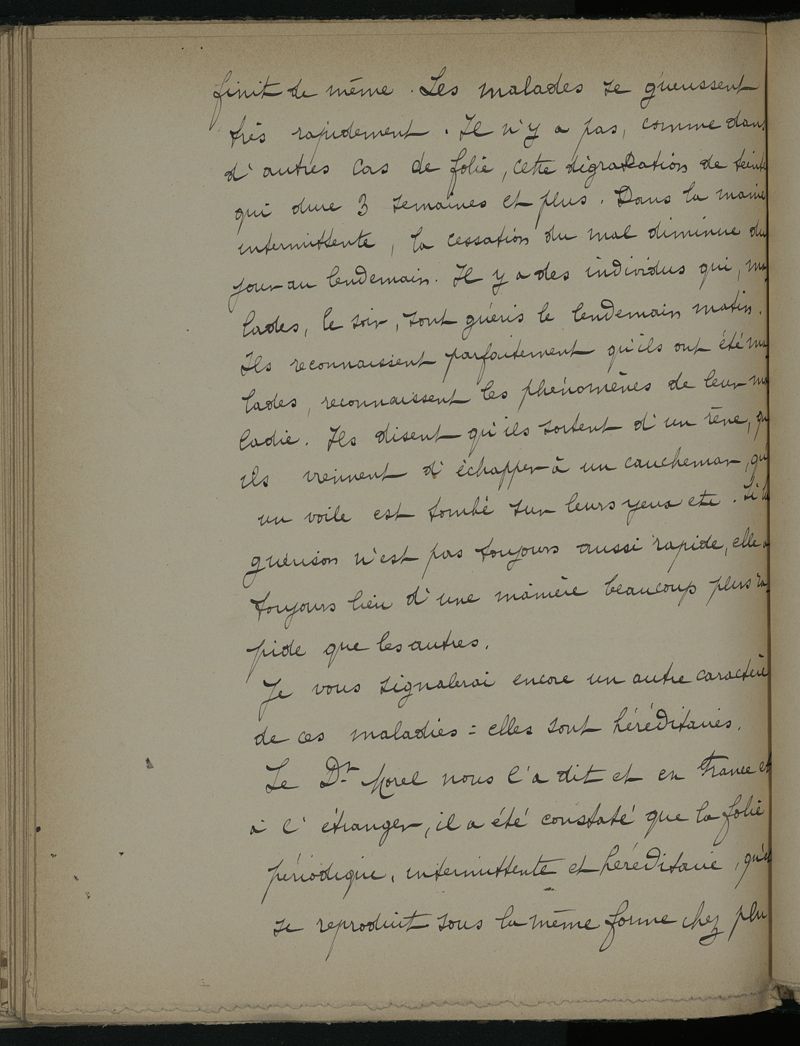 finit de même. Les malades se guérissent
très rapidement. Il n'y a pas, comme dans
d'autres cas de folie, cette dégradation de teinte
qui dure 3 semaines et plus. Dans la manie
intermittente, la cessation du mal diminue du
jour au lendemain. Il y a des individus qui, ma
lades, le soir, sont guéris le lendemain matin.
Ils reconnaissent parfaitement qu'ils ont été ma
lades, reconnaissent les phénomènes de leur ma
ladie. Ils disent qu'ils sortent d'un rêve, qu
ils viennent d'échapper à un cauchemar, qu'
un voile est tombé sur leurs yeux etc. Si la
guérison n'est pas toujours aussi rapide, elle a
toujours lieu d'une manière beaucoup plus ra
pide que les autres.
Je vous signalerai encore un autre caractère
de ces maladies = elles sont héréditaires.
Le Dr Morel nous l'a dit et en France et
à l'étranger, il a été constaté que la folie
périodique, intermittente et héréditaire,
se reproduit sous la même forme chez plu